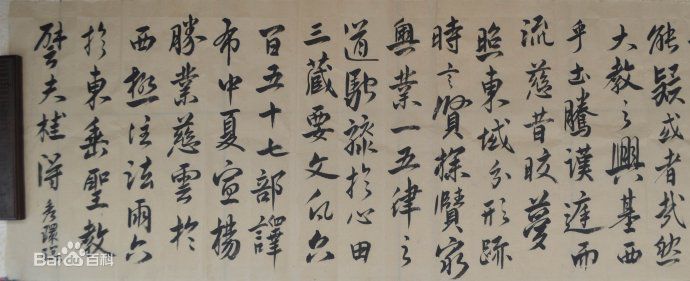 能疑或者哉然
大教之興基西
乎土騰漢庭而
流慈昔皎夢
照東域分形跡
時言賢探賾窮
奧業一五律之
道馳驟於心田
三藏要文凡六
百五十七部譯
布中夏宣揚
勝業慈雲於
西極注法雨六
於東垂聖教
譬夫桂得
Baidu百科